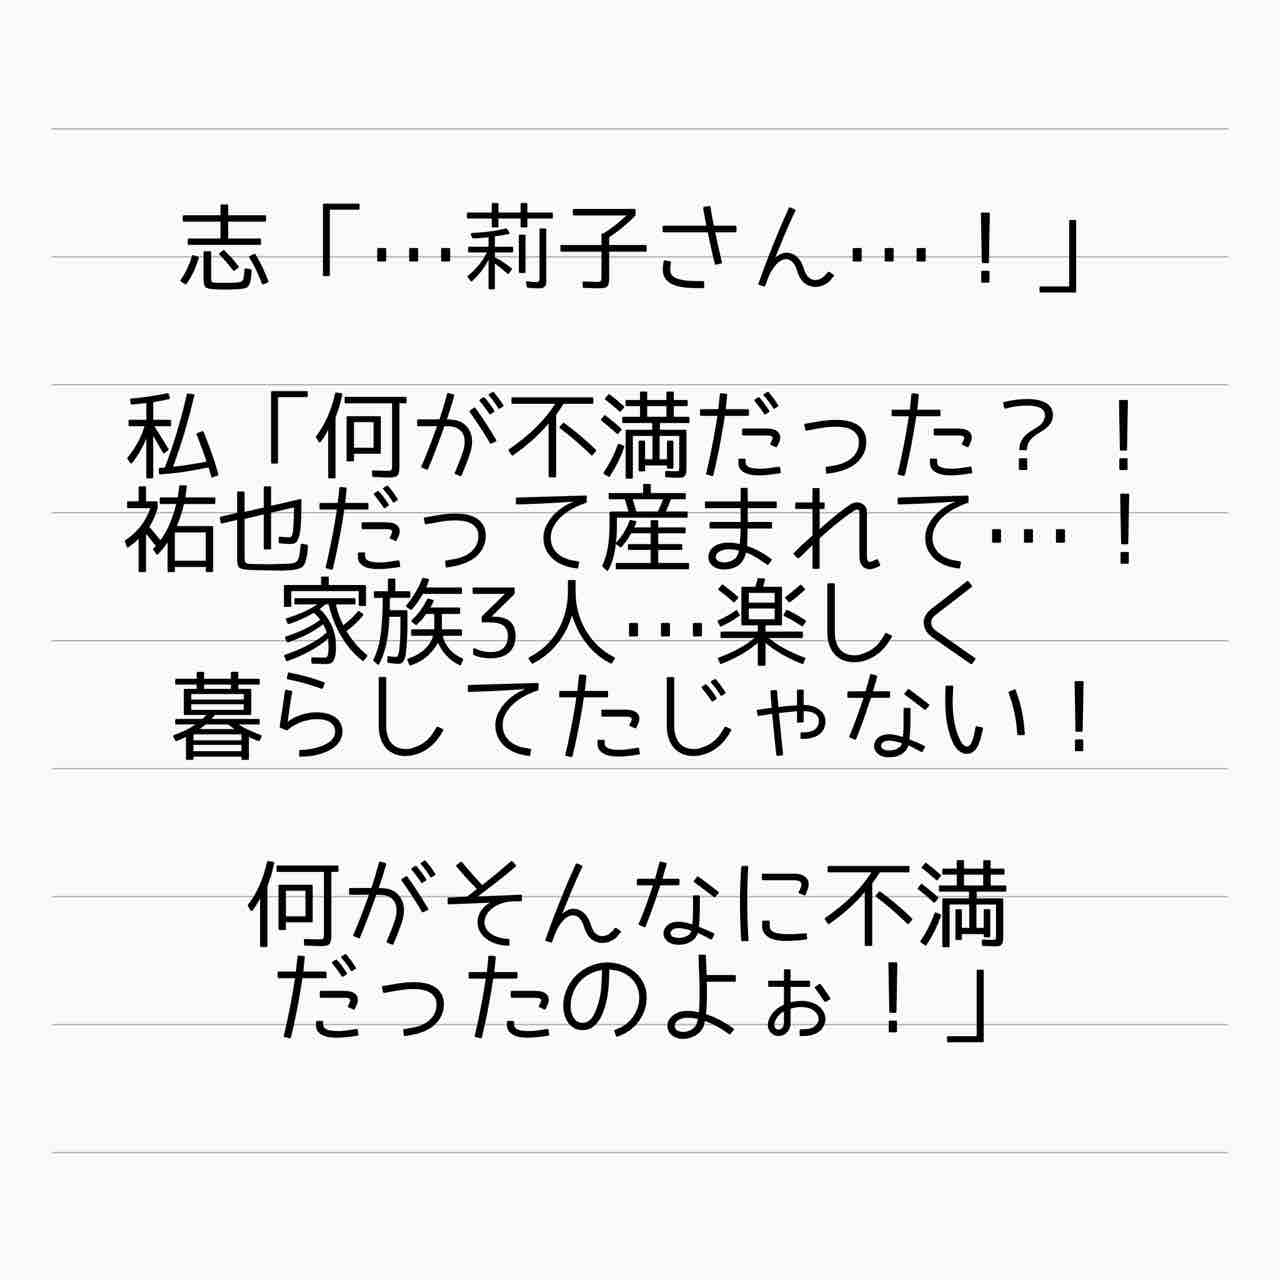 志「…莉子さん…！」
私「何が不満だった？！
祐也だって産まれて…！
家族3人…楽しく
暮らしてたじゃない！
何がそんなに不満
だったのよぉ！」